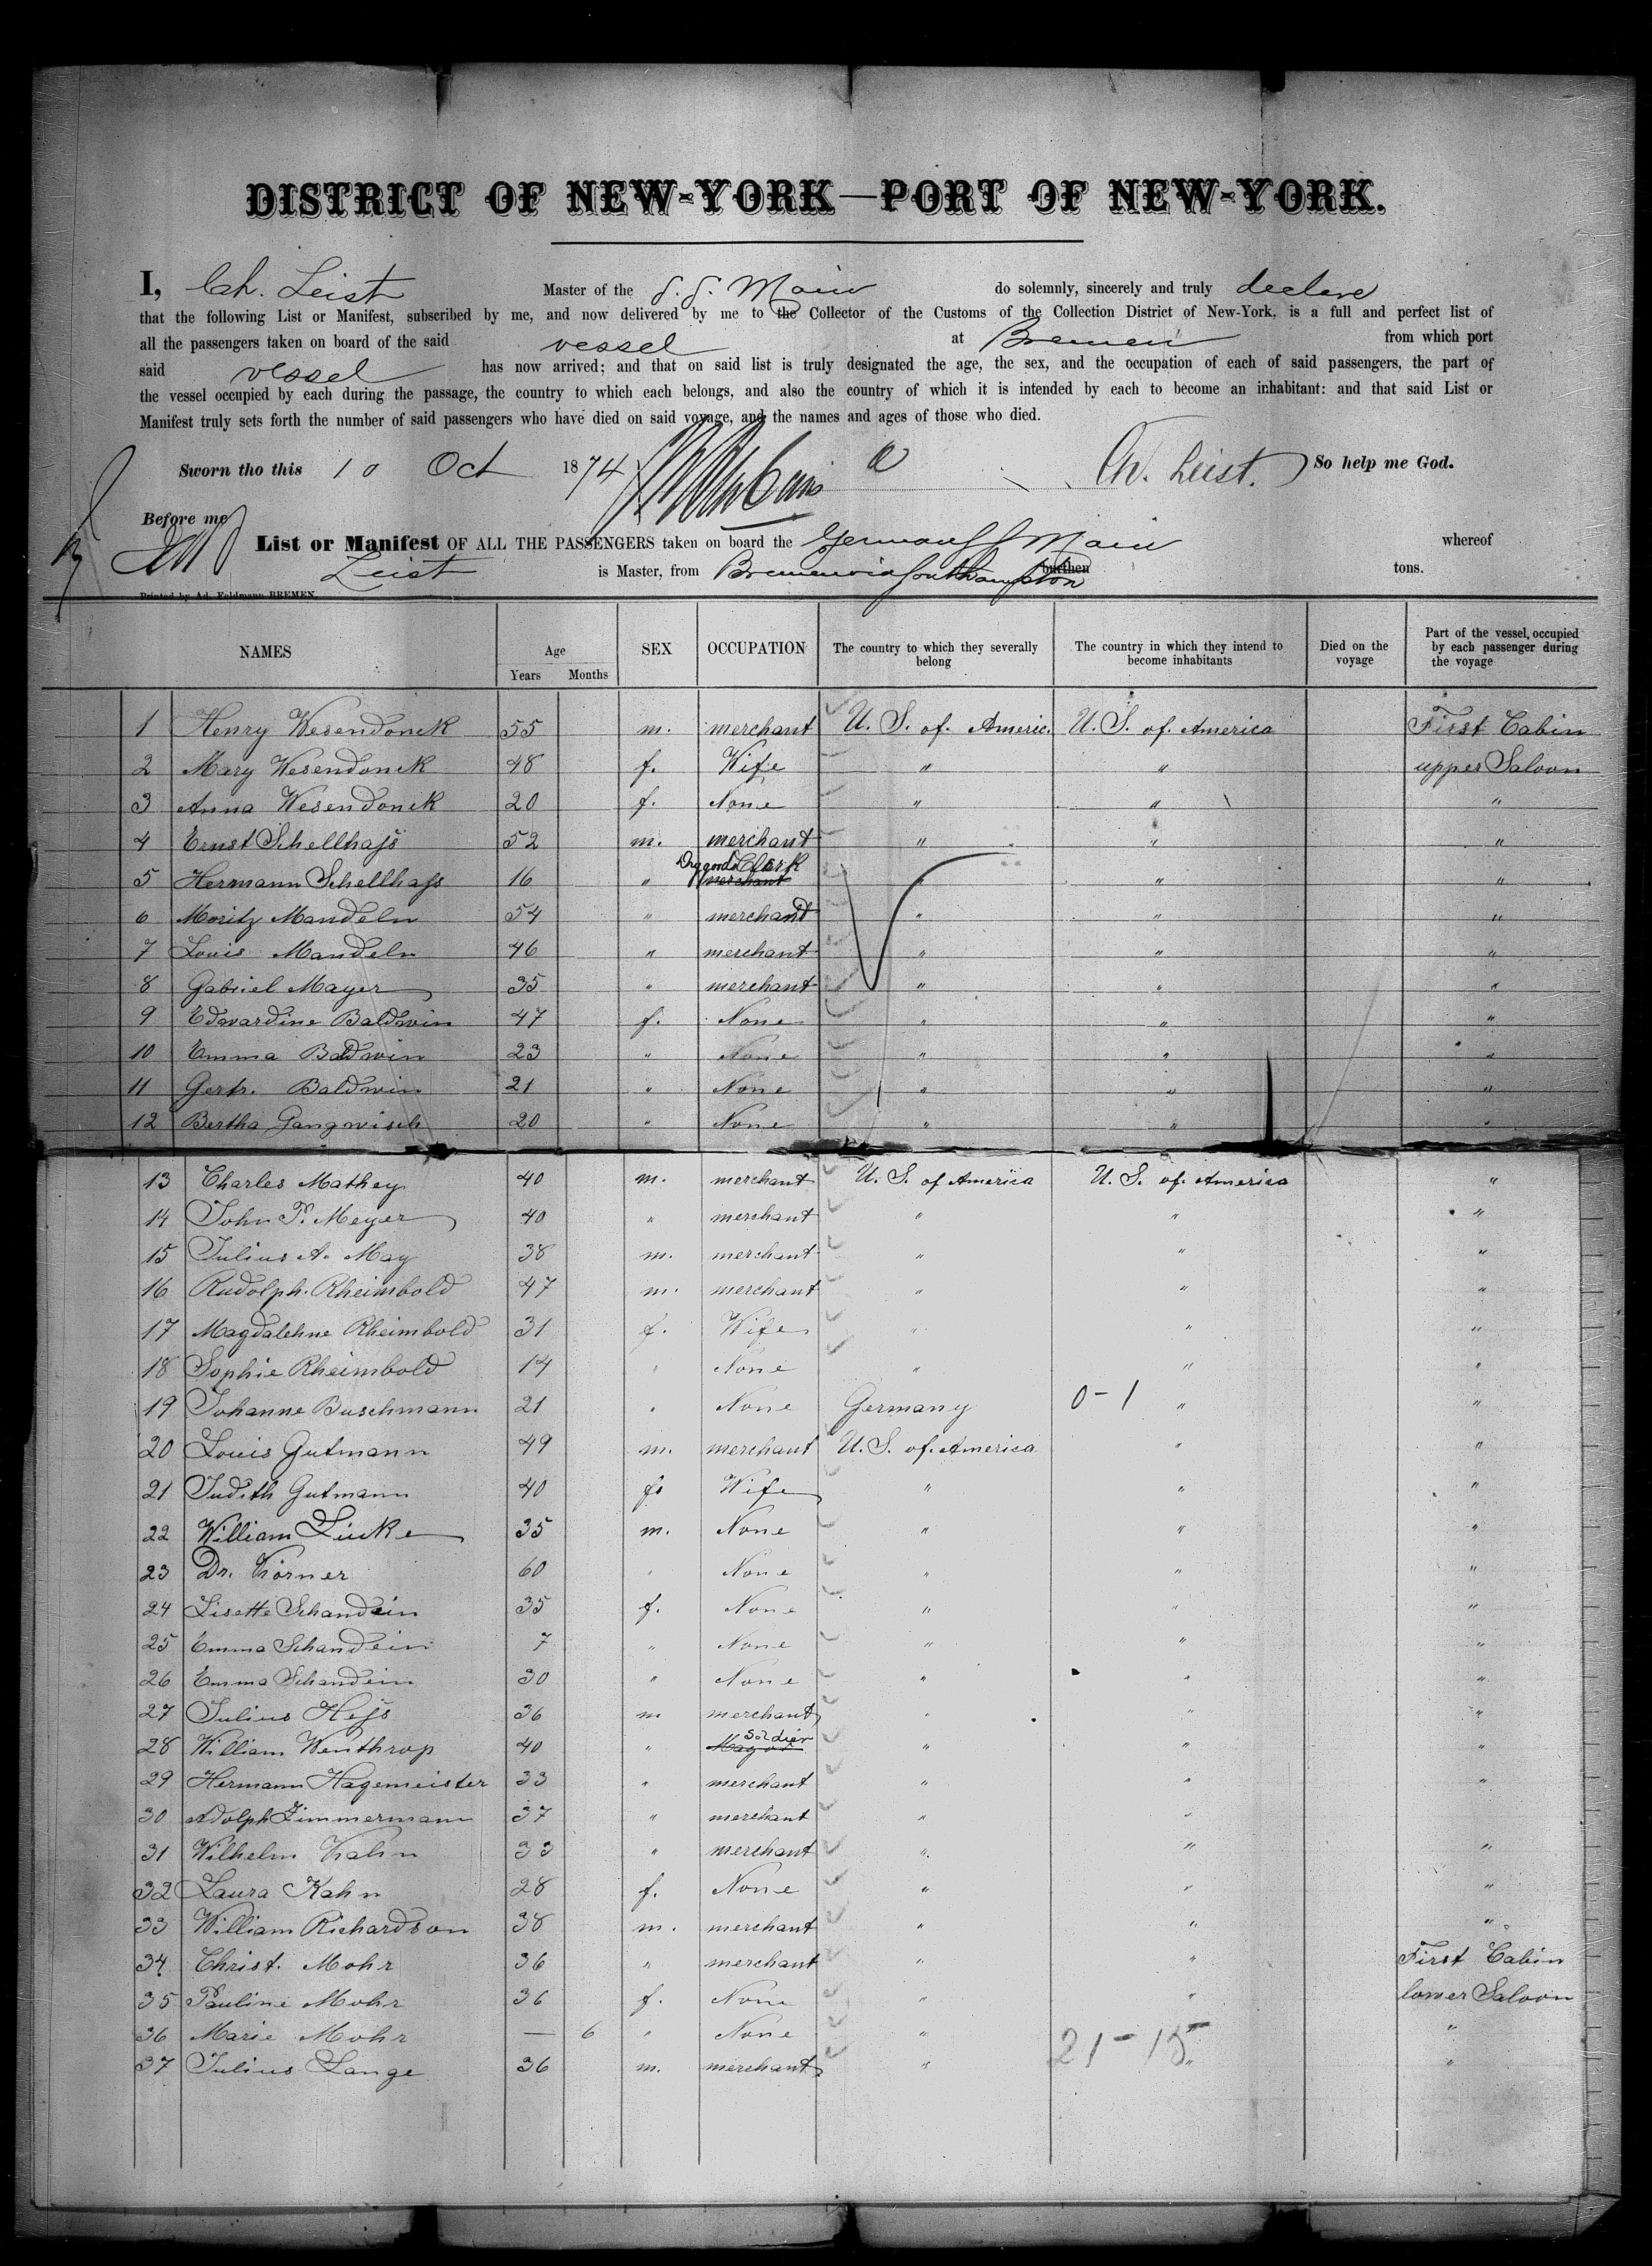 DISTRICT OF NEW-YORK—PORT OF NEW-YORK.
I, Ch. Leist Master of the S. S. Main do solemnly, sincerely and truly declare
that the following List or Manifest, subscribed by me, and now delivered by me to the Collector of the Customs of the Collection District of New-York, is a full and perfect list of
all the passengers taken on board of the said vessel at Bremen from which port
said vessel has now arrived; and that on said list is truly designated the age, the sex, and the occupation of each of said passengers, the part of
the vessel occupied by each during the passage, the country to which each belongs, and also the country of which it is intended by each to become an inhabitant: and that said List or
Manifest truly sets forth the number of said passengers who have died on said voyage, and the names and ages of those who died.
Sworn tho this 10 Oct 1874 Ch. Leist. So help me God.
Before me
List or Manifest OF ALL THE PASSENGERS taken on board the German SS Main whereof
Leist is Master, from Bremen via Southampton burthen tons.
Printed by Ad. Feldmann BREMEN.
NAMES Age Years Months SEX OCCUPATION The country to which they severally belong The country in which they intend to become inhabitants Died on the voyage Part of the vessel, occupied by each passenger during the voyage
1 Henry Wesendonck 55 m. merchant U. S. of. Americ. U. S. of. America First Cabin
2 Mary Wesendonck 48 f. Wife " " upper Saloon
3 Anna Wesendonck 20 f. None " " "
4 Ernst Schellhass 52 m. merchant " " "
5 Hermann Schellhass 16 " Drygoods Clerk merchant " " "
6 Moritz Mandeln 54 " merchand " " "
7 Louis Mandeln 46 " merchant " " "
8 Gabriel Mayer 35 " merchant " " "
9 Edwardine Baldwin 47 f. None " " "
10 Emma Baldwin 23 " None " " "
11 Gertr. Baldwin 21 " None " " "
12 Bertha Gangwisch 20 " None " " "
13 Charles Mathey 40 m. merchant U. S. of America U. S. of. America "
14 John P. Meyer 40 " merchant " " "
15 Julius A. May 38 m. merchant " " "
16 Rudolph. Rheimbold 47 m. merchant " " "
17 Magdalehne Rheimbold 31 f. Wife " " "
18 Sophie Rheimbold 14 " None " " "
19 Johanne Buschmann 21 " None Germany 0-1 " "
20 Louis Gutmann 49 m. merchant U. S. of. America " "
21 Judith Gutmann 40 f. Wife " " "
22 William Lücke 35 m. None " " "
23 Dr. Körner 60 " None " " "
24 Lisette Schandein 35 f. None " " "
25 Emma Schandein 7 " None " " "
26 Emma Schandein 30 " None " " "
27 Julius Hess 36 m merchant " " "
28 William Wenthrop 40 " Soldier Mayor " " "
29 Hermann Hagemeister 33 " merchant " " "
30 Adolph Zimmermann 37 " merchant " "
31 Wilhelm Kahn 33 " merchant " " "
32 Laura Kahn 28 f. None " " "
33 William Richardson 38 m. merchant " " "
34 Christ. Mohr 36 " merchant " " First Cabin
35 Pauline Mohr 36 f. None " " lower Saloon
36 Marie Mohr — 6 " None " 21-15 "
37 Julius Lange 36 m. merchant " " "